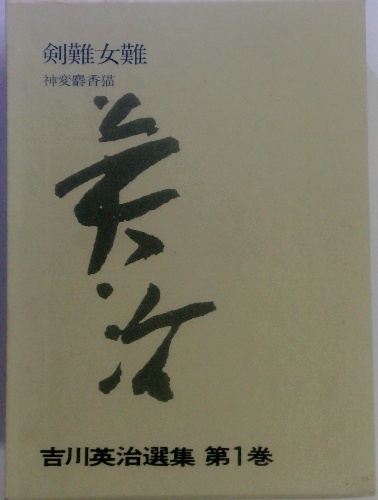 剣難女難
神変麝香猫
英治
吉川英治選集 第1巻